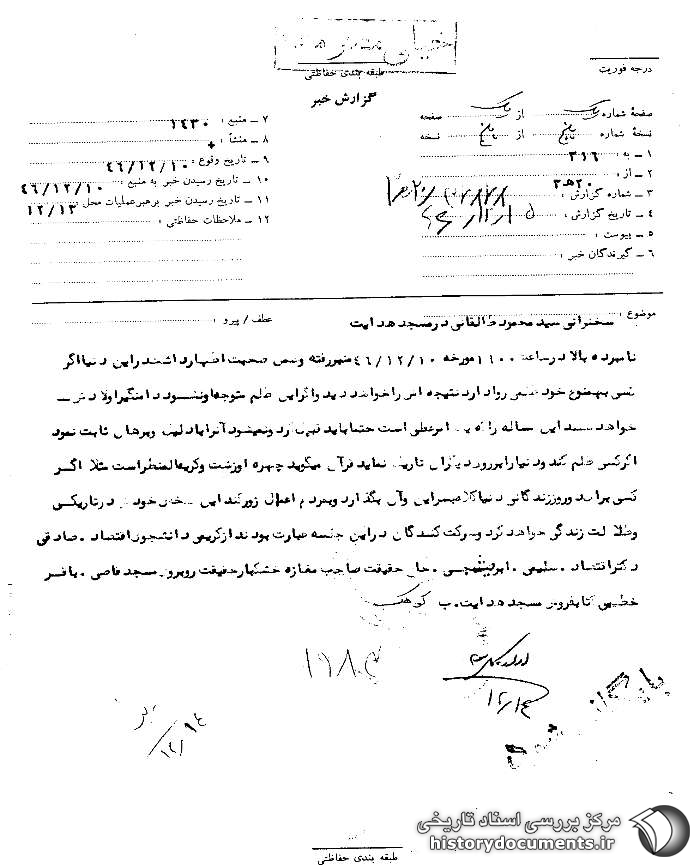 طبقه بندی حفاظتی
درجه فوریت
گزارش خبر
صفحهٔ شماره یک از یک صفحه
نسخهٔ شماره از نسخه
۱ ـ به : ۳۱۶
۲ ـ از : ۲۰ هـ ۳
۳ ـ شماره گزارش :
۴ ـ تاریخ گزارش :
۵ ـ پیوست :
۶ ـ گیرندگان خبر :
۷ ـ منبع : ۱۴۳۰
۸ ـ منشأ :
۹ ـ تاریخ وقوع : ۴۶/۱۲/۱۰
۱۰ ـ تاریخ رسیدن خبر به منبع : ۴۶/۱۲/۱۰
۱۱ ـ تاریخ رسیدن خبر برهبر عملیات محل ۱۲/۱۳
۱۲ ـ ملاحظات حفاظتی :
موضوع : سخنرانی سید محمود طالقانی در مسجد هدایت
عطف / پیرو :
نامبرده بالا در ساعت مورخه ۴۶/۱۲/۱۰ منبر رفته و ضمن صحبت اظهار داشتند در این دنیا اگر
کسی بهمنوع خود ظلمی روا دارد نتیجه اش را خواهد دید و اگر این ظلم متوجه او نشود دامنگیر اولادش
خواهد شد این مساله را که امر عقلی است حتما باید و نمیشود آنرا با دلیل و برهان ثابت نمود
اگر کسی ظلم کند و دنیا را بر روی دیگران تاریک نماید قرآن میگوید چهره او زشت و کریه المنظر است مثلا اگر
کسی برای دو روز زندگانی دنیا کلاه بسر این و آن بگذارد و بمردم اعمال زور کند این شخص خود در تاریکی
و ضلالت زندگی خواهد کرد و شرکت کنندگان در این جلسه عبارت بودند از کریمی دانشجوی اقتصاد . صادقی
دکتر اقتصاد . سلیمی . ابریشمچی . حقیقت صاحب مغازه خشکبار حقیقت روبروی مسجد قاضی . باقر
خطیبی کتابفروش مسجد هدایت . ب
۱۲/۱۴
۱۲/۱۴
مرکز بررسی اسناد تاریخی
historydocuments.ir
طبقه بندی حفاظتی